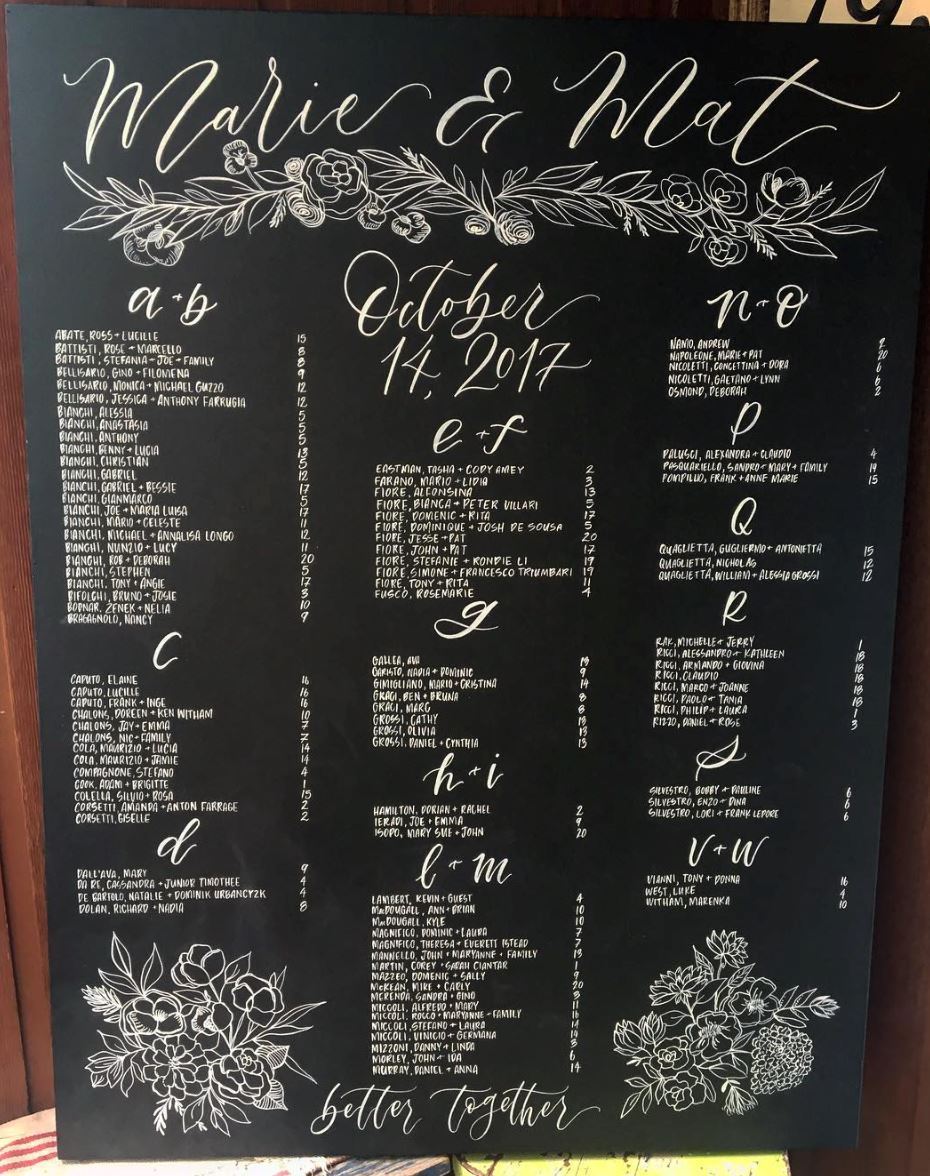 Marie & Mat
October
14, 2017
a + b
ABATE, ROSS + LUCILLE 15
BATTISTI, ROSE + MARCELLO 8
BATTISTI, STEFANIA + JOE + FAMILY 8
BELLISARIO, GINO + FILOMENA 9
BELLISARIO, MONICA + MICHAEL GUZZO 12
BELLISARIO, JESSICA + ANTHONY FARRUGIA 12
BIANCHI, ALESSIA 5
BIANCHI, ANASTASIA 5
BIANCHI, ANTHONY 5
BIANCHI, BENNY + LUCIA 13
BIANCHI, CHRISTIAN 5
BIANCHI, GABRIEL 12
BIANCHI, GABRIEL + BESSIE 17
BIANCHI, GIANMARCO 5
BIANCHI, JOE + MARIA LUISA 17
BIANCHI, MARIO + CELESTE 11
BIANCHI, MICHAEL + ANNALISA LONGO 12
BIANCHI, NUNZIO + LUCY 11
BIANCHI, ROB + DEBORAH 20
BIANCHI, STEPHEN 5
BIANCHI, TONY + ANGIE 17
BIFOLCHI, BRUNO + JOSIE 3
BODNAR, ZENEK + NELIA 10
BRAGAGNOLO, NANCY 9
C
CAPUTO, ELAINE 16
CAPUTO, LUCILLE 16
CAPUTO, FRANK + INGE 16
CHALONS, DOREEN + KEN WITHAM 10
CHALONS, JAY + EMMA 7
CHALONS, NIC + FAMILY 7
COLA, MAURIZIO + LUCIA 14
COLA, MAURIZIO + JAMIE 14
COMPAGNONE, STEFANO 4
COOK, ADAM + BRIGITTE 1
COLELLA, SILVIO + ROSA 15
CORSETTI, AMANDA + ANTON FARRAGE 2
CORSETTI, GISELLE 2
d
DALL'AVA, MARY 9
DA RE, CASSANDRA + JUNIOR TIMOTHEE 4
DE BARTOLO, NATALIE + DOMINIK URBANCYZK 4
DOLAN, RICHARD + NADIA 8
e + f
EASTMAN, TASHA + CODY AMEY 2
FARANO, MARIO + LIDIA 3
FIORE, ALFONSINA 13
FIORE, BIANCA + PETER VILLARI 5
FIORE, DOMENIC + RITA 17
FIORE, DOMINIQUE + JOSH DE SOUSA 5
FIORE, JESSE + PAT 20
FIORE, JOHN + PAT 17
FIORE, STEFANIE + RONDIE LI 19
FIORE, SIMONE + FRANCESCO TRIUMBARI 19
FIORE, TONY + RITA 11
FUSCO, ROSEMARIE 4
g
GALLEA, AVI 19
GARISTO, NADIA + DOMINIC 9
GIMIGLIANO, MARIO + CRISTINA 14
GRACI, BEN + BRUNA 8
GRACI, MARC 8
GROSSI, CATHY 13
GROSSI, OLIVIA 13
GROSSI, DANIEL + CYNTHIA 13
h + i
HAMILTON, DORIAN + RACHEL 2
IERADI, JOE + EMMA 9
ISOPO, MARY SUE + JOHN 20
l + m
LAMBERT, KEVIN + GUEST 4
MacDOUGALL, ANN + BRIAN 10
MacDOUGALL, KYLE 10
MAGNIFICO, DOMINIC + LAURA 7
MAGNIFICO, THERESA + EVERETT ISTEAD 7
MANNELLO, JOHN + MARYANNE + FAMILY 13
MARTIN, COREY + SARAH CIANTAR 1
MAZZEO, DOMENIC + SALLY 9
McKEAN, MIKE + CARLY 20
MCRENDA, SANDRA + GINO 3
MICCOLI, ALFREDO + MARY 11
MICCOLI, ROCCO + MARYANNE + FAMILY 16
MICCOLI, STEFANO + LAURA 14
MICCOLI, VINICIO + GERMANA 14
MIZZONI, DANNY + LINDA 3
MORLEY, JOHN + IDA 6
MURRAY, DANIEL + ANNA 14
n + o
NANIO, ANDREW 2
NAPOLEONE, MARIE + PAT 20
NICOLETTI, CONCETTINA + DORA 6
NICOLETTI, GAETANO + LYNN 6
OSMOND, DEBORAH 2
P
PALUSCI, ALEXANDRA + CLAUDIO 4
PASQUARIELLO, SANDRO + MARY + FAMILY 19
POMPILIO, FRANK + ANNE MARIE 15
Q
QUAGLIETTA, GUGLIERMO + ANTONIETTA 15
QUAGLIETTA, NICHOLAS 12
QUAGLIETTA, WILLIAM + ALESSIA GROSSI 12
R
RAK, MICHELLE + JERRY 1
RICCI, ALESSANDRO + KATHLEEN 18
RICCI, ARMANDO + GIOVINA 18
RICCI, CLAUDIO 18
RICCI, MARCO + JOANNE 18
RICCI, PAOLO + TANIA 18
RICCI, PHILIP + LAURA 1
RIZZO, DANIEL + ROSE 3
S
SILVESTRO, BOBBY + PAULINE 6
SILVESTRO, ENZO + DINA 6
SILVESTRO, LORI + FRANK LEPORE 6
V + W
VIANNI, TONY + DONNA 16
WEST, LUKE 4
WITHAM, MARENKA 10
better together